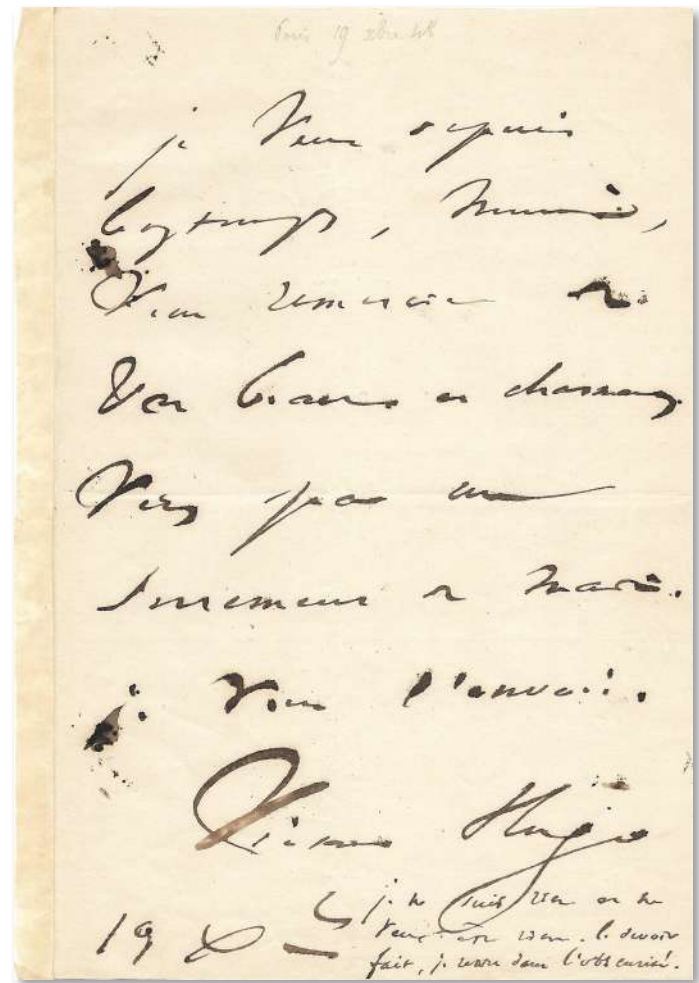 Paris 19 xbre 48
je veux depuis
longtemps, Monsieur,
vous remercier de
vos beaux et charmants
vers par un
serrement de main.
je vous l'envoie.
Victor Hugo
19 Xbre
je ne suis rien et ne
veux être rien. le devoir
fait, je rentre dans l'obscurité.